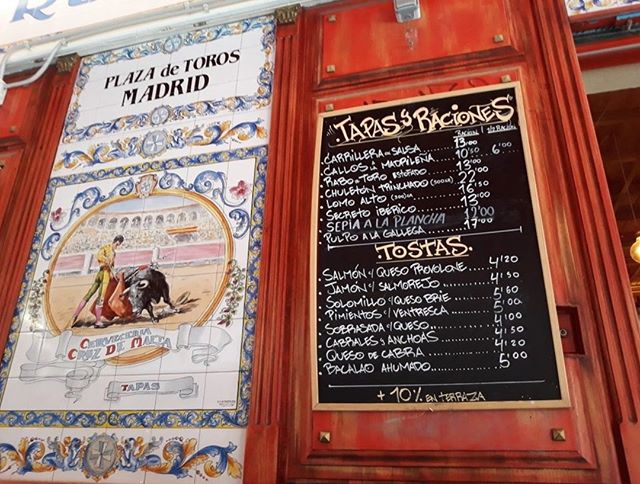 PLAZA de TOROS
MADRID
CERVECERIA
CRUZ DE MALTA
TAPAS
TAPAS y RACIONES
RACIÓN | 1/2 RACIÓN
CARRILLERA EN SALSA 13'00
CALLOS A LA MADRILEÑA 10'50 6'00
RABO DE TORO ESTOFADO 13'00
CHULETÓN TRINCHADO (500GR) 22'
LOMO ALTO (300GR) 16'50
SECRETO IBÉRICO 13'00
SEPIA A LA PLANCHA 12'00
PULPO A LA GALLEGA 17'00
TOSTAS
SALMÓN Y QUESO PROVOLONE 4'20
JAMÓN Y SALMOREJO 4'50
SOLOMILLO Y QUESO BRIE 5'60
PIMIENTOS Y VENTRESCA 5'00
SOBRASADA Y QUESO 4'00
CABRALES Y ANCHOAS 4'50
QUESO DE CABRA 4'20
BACALAO AHUMADO 5'00
+ 10% EN TERRAZA